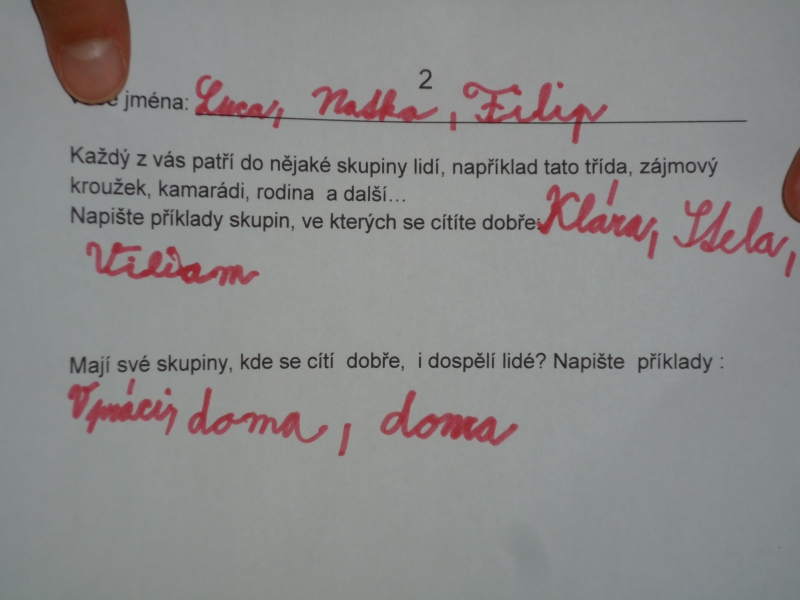 2
jména: Luca, Naška, Filip
Každý z vás patří do nějaké skupiny lidí, například tato třída, zájmový
kroužek, kamarádi, rodina a další...
Napište příklady skupin, ve kterých se cítíte dobře: Klára, Stela,
Viliam
Mají své skupiny, kde se cítí dobře, i dospělí lidé? Napište příklady :
V práci, doma, doma